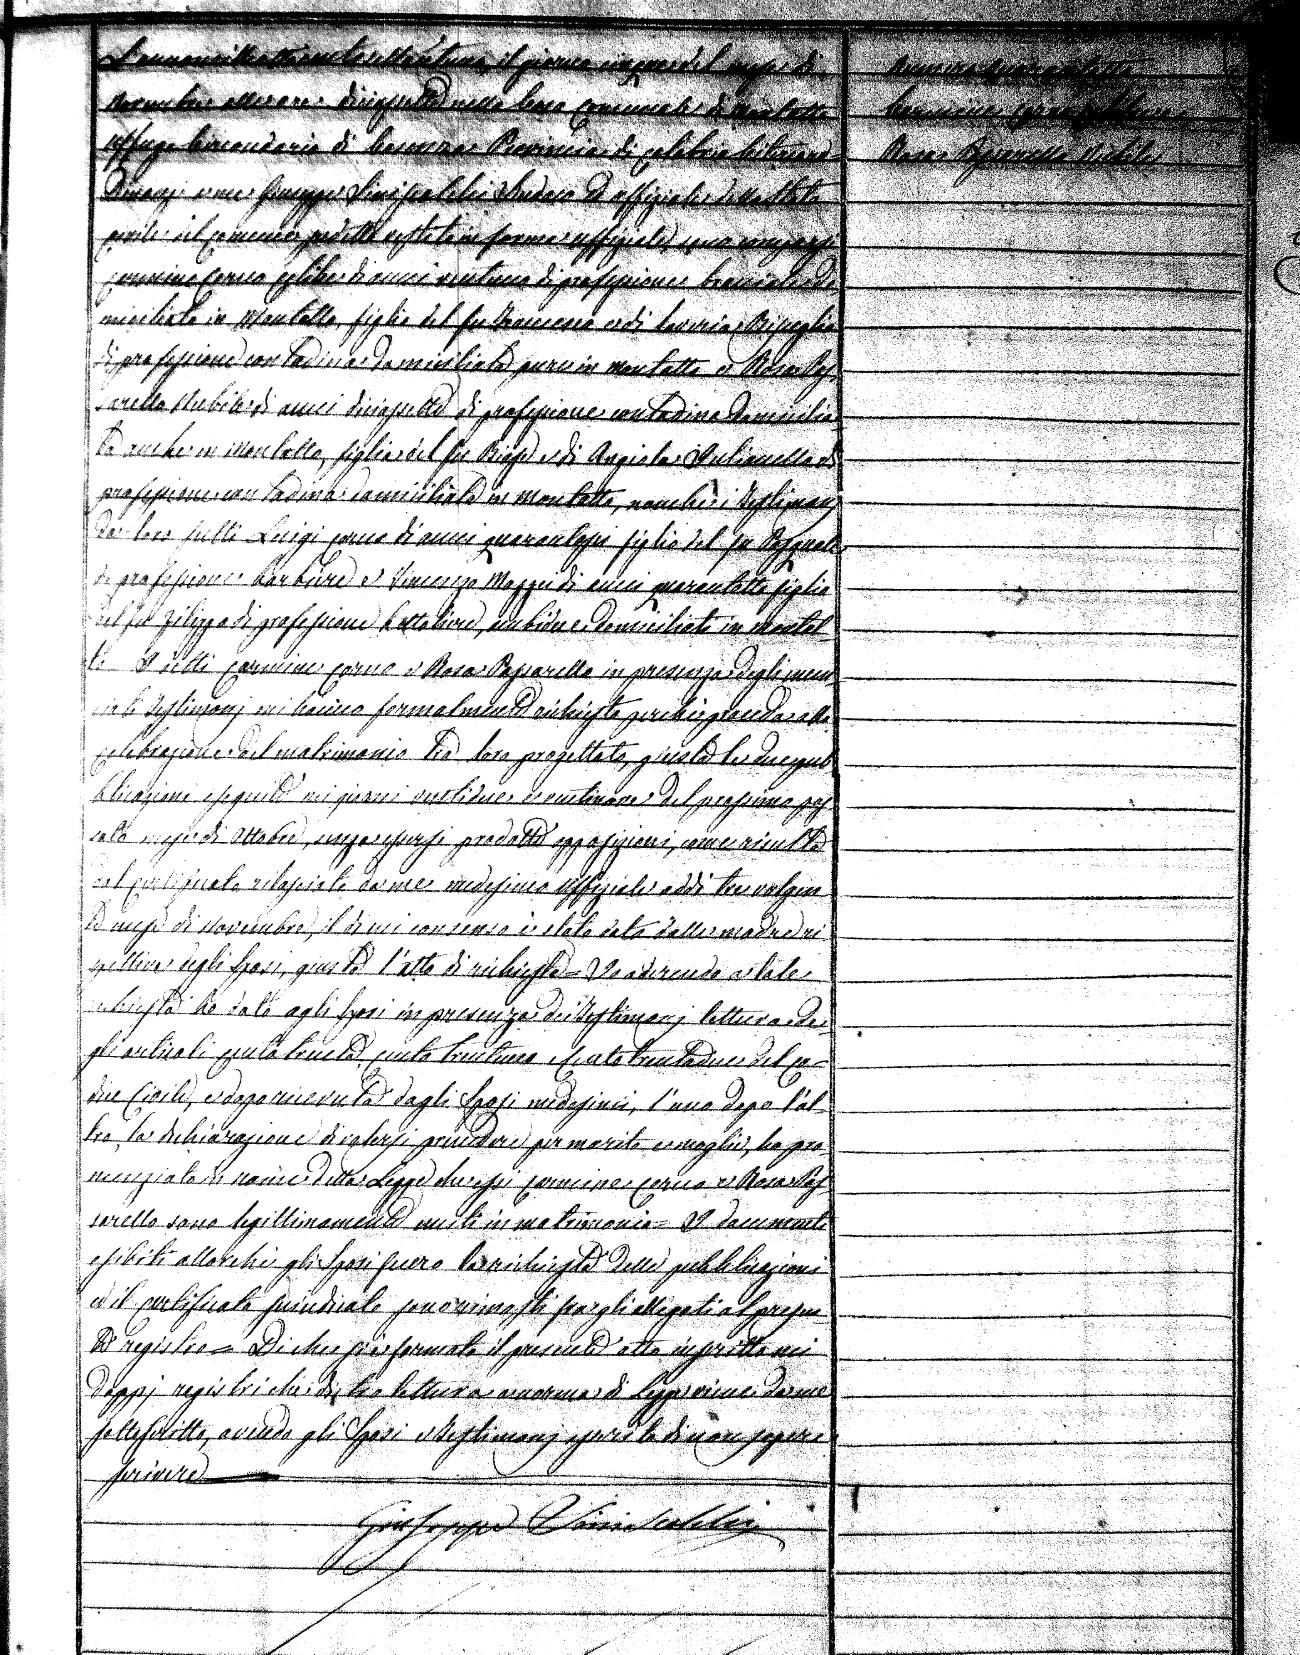 L'anno mille ottocento settantuno, il giorno cinque del mese di
Novembre alle ore diciassette nella Casa Comunale di Montalto
Uffugo Circondario di Cosenza Provincia di Calabria Citeriore
Dinanzi a me Giuseppe Siniscalchi Sindaco ed uffiziale dello Stato
civile del Comune vestito in forma uffiziale, sono comparsi
Carmine Corno celibe di anni ventuno di professione bracciale do
miciliato in Montalto, figlio del fu Francesco e di Saveria
di professione contadina domiciliata pure in Montalto e Rosa Pas
sarello Nubile di anni diciassette di professione contadina domicilia
ta anche in Montalto, figlia del fu Biase e di Angiola di
professione contadina domiciliata in Montalto, nonche i testimonj
da loro scelti Luigi Corno di anni quarantasei figlio del fu Pasquale
di professione barbiere e Vincenzo Mazzei di anni quarantotto figlio
del fu Filippo di professione bottoliere, ambidue domiciliati in Montal
to I detti Carmine Corno e Rosa Passarello in presenza degli enun
ciati testimonj mi hanno formalmente richiesto perche proceda alla
celebrazione del matrimonio tra loro progettato, giusta le due pub
blicazioni eseguite nei giorni ventidue e ventinove del prossimo pas
sato mese di Ottobre, senza essersi prodotte opposizioni, come risulta
dal certificato rilasciato da me medesimo uffiziale addi tre volgen
te mese di Novembre, il di cui consenso è stato dato dalle madre ri
spettive degli sposi, giusta l'atto di richiesta = Io aderendo a tale
richiesta ho dato agli sposi in presenza dei testimonj lettura de
gli articoli cento trenta, cento trentuno e cento trentadue del Co-
dice Civile, e dopo ricevuta dagli sposi medesimi, l'uno dopo l'al
tro, la dichiarazione di volersi prendere per marito e moglie, ho pro
nunziato in nome della Legge che essi Carmine Corno e Rosa Pas
sarello sono legittimamente uniti in matrimonio = I documenti
esibiti allorchè gli sposi fecero la richiesta delle pubblicazioni
ed il certificato sono rimasti fra gli allegati al presen
te registro = Di che si è formato il presente atto inscritto nei
doppj registri che dietro lettura a norma di Legge viene da me
sottoscritto, avendo gli sposi e testimonj asserito di non sapere
scrivere
Giuseppe Siniscalchi
Numero quarantotto
Carmine Corno celibe
Rosa Passarello Nubile